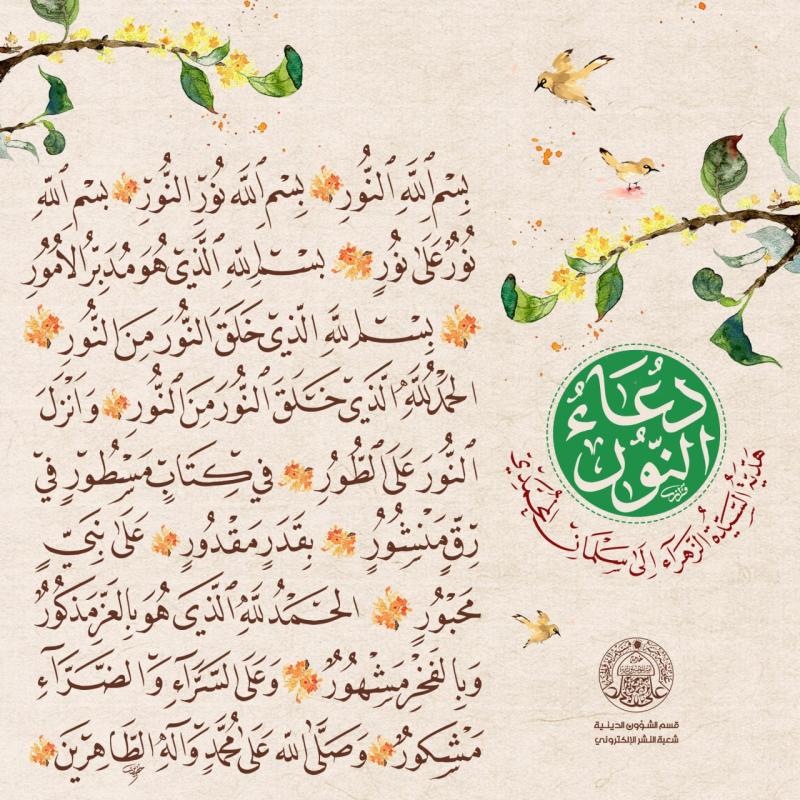 بِسْمِ ٱللَّهِ ٱلنُّورِ بِسْمِ ٱللَّهِ نُورِ النُّورِ بِسْمِ ٱللَّهِ
نُورٌ عَلىٰ نُورٍ بِسْمِ للهِ ٱلَّذِي هُوَ مُدَبِّرُ الْأُمُورِ
بِسْمِ للهِ الَّذِي خَلَقَ النُّورَ مِنَ النُّورِ
الحَمْدُ للهِ الَّذِي خَلَقَ ٱلنُّورَ مِنَ ٱلنُّورِ وَاَنْزَلَ
ٱلنُّورَ عَلَى ٱلطُّورِ فِي كِتَابٍ مَسْطُورٍ فِي
رِقٍّ مَنْشُورٍ بِقَدَرٍ مَقْدُورٍ عَلىٰ نَبِيٍّ
مَحْبُورٍ الحَمْدُ للهِ ٱلَّذِي هُوَ بِالعِزِّ مَذْكُورٌ
وَبِالفَخْرِ مَشْهُورٌ وَعَلَى السَّرَّاءِ وَالضَّرَّاءِ
مَشْكُورٌ وَصَلَّى اللهُ عَلىٰ مُحَمَّدٍ وَآلِهِ الطَّاهِرِينَ
دُعَاءُ
النُّورِ
هَدِيَّةُ السَّيِّدَةِ الزَّهْرَاءِ إِلىٰ سَلْمَانَ المُحَمَّدِي
قسم الشؤون الدينية
شعبة النشر الإلكتروني